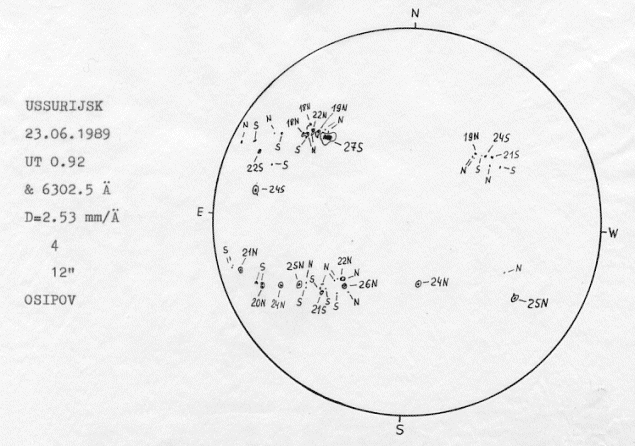 USSURIJSK
23.06.1989
UT 0.92
& 6302.5 Å
D=2.53 mm/Å
4
12"
OSIPOV
N
18N 19N
N S N 18N 22N N
S N 27S
22S S
24S
19N 24S
21S
N S N S
E
W
S 21N S 25N N S N 22N N
26N
20N 24N S 21S S S N
24N
N
25N
S